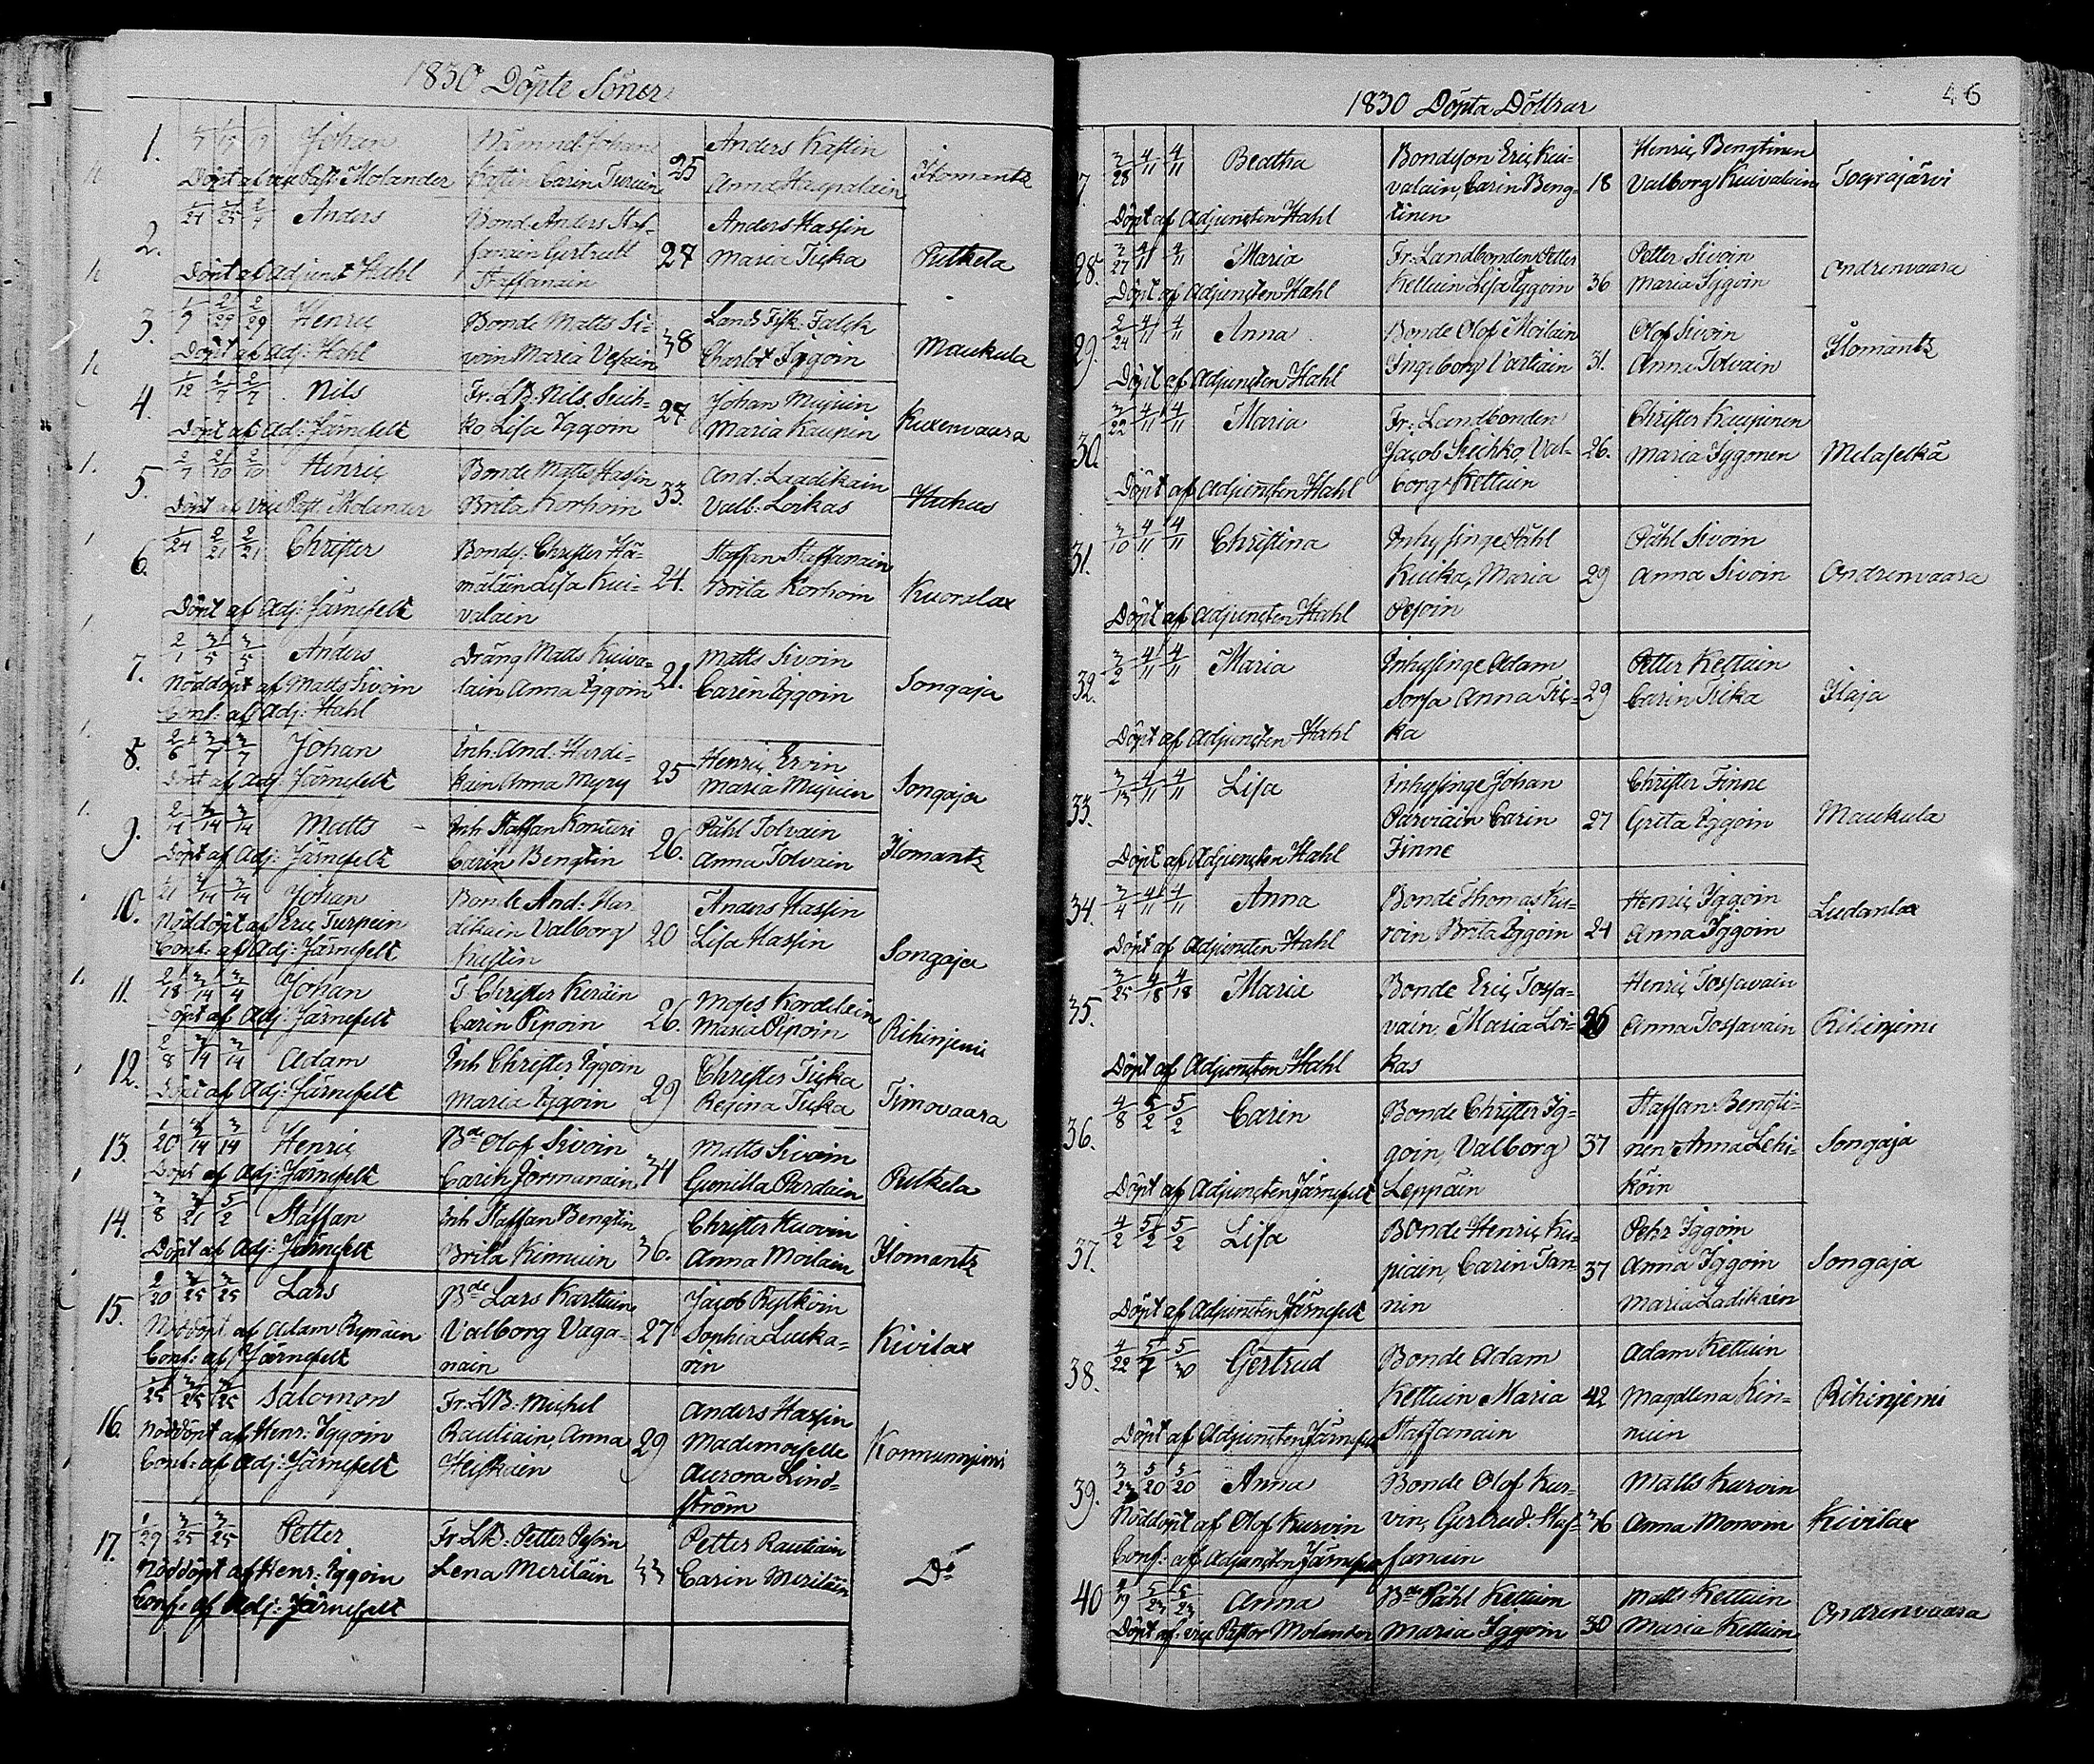 1830 Döpte Söner
1. Johan Nämnd: Johan Anders Kastin
Döpt af vice Past: Molander Kastin Carin Turuin 25 Ilomantz
2. 1/21 1/25 Anders Bond. Anders Staf- Anders Hassin
fanain Gertrudt 27 Maria Ticka Putkela
Döpt af Adjunct Hahl Staffanain
3. 1/9 2/29 2/29 Henric Bonde Matts Si- Lands Fisk: Falck
Döpt af Adj: Hahl voin Maria Vesain 38 Charlot Iggoin Maukula
4. 1/12 2/7 2/7 Nils Fr: LB: Nils Sich- Johan Mujuin
Döpt af Adj: Järnefelt ko Lisa Iggoin 27 Maria Kaupin Kuxenvaara
5. 2/7 2/10 2/10 Henric Bonde Matts Hassin And: Laadikain
Döpt af Vice Past: Molander Brita Korhoin 33. Valb: Loikas Hahus
6. 1/24 2/21 2/21 Christer Bonds: Christer Hä- Staffan Staffanain
mäläin Lisa Kui- 24. Brita Korhoin Kuoralax
Döpt af Adj: Järnefelt valain
7. 2/1 3/5 3/5 Anders Dräng Matts Kuiva- Matts Sivoin
Nöddöpt af Matts Sivoin lain, Anna Iggoin 21. Carin Iggoin Songaja
Conf: af Adj: Hahl
8. 2/6 3/7 3/7 Johan Inh: And: Hurdi- Henric Ervin
Döpt af Adj: Järnefelt kain Anna Myry 25 Maria Mujuin Songaja
9. 2/14 3/14 3/14 Matts Inh Staffan Konturi Påhl Tolvain
Döpt af Adj: Järnefelt Carin Bengtin 26. Anna Tolvain Ilomantz
10. 1/21 3/14 3/14 Johan Bonde And: Har- Anders Hassin
Nöddöpt af Eric Turpein dikain Valborg 20 Lisa Hassin
Conf: af Adj: Järnefelt Kastin Songaja
11. 2/18 3/14 3/4 Johan T. Christer Keräin Moses Kordelain
Döpt af Adj: Järnefelt Carin Pipoin 26. Maria Pipoin Rihinjemi
12. 2/8 3/14 3/14 Adam Inh Christer Iggoin Christer Ticka
Döpt af Adj: Järnefelt Maria Iggoin 29 Regina Ticka Timovaara
13. 1/20 3/14 3/14 Henric Bde Olof Sivoin Matts Sivoin
Döpt af Adj: Järnefelt Carin Jormanain 34 Gunilla Pardain Putkela
14. 3/8 3/21 5/2 Staffan Inh Staffan Bengtin Christer Kuovin
Döpt af Adj: Järnefelt Brita Kinnuin 36. Anna Moilain Ilomantz
15. 2/20 3/25 3/25 Lars Bde Lars Karttuin Jacob Rytköin
Nöddöpt af Adam Repnäin Valborg Vaga- 27 Sophia Luka- Kivilax
Conf: af Järnefelt nain rin
16. 1/25 3/25 3/25 Salomon Fr: LB: Michel Anders Hassin
Nöddöpt af Henr: Iggoin Rautiain, Anna 29 Mademoiselle Konnunnjemi
Conf: af Adj: Järnefelt Heiskain Aurora Lind-
ström
17. 1/29 3/25 3/25 Petter Fr: LB: Petter Pesoin Petter Rautiain
Nöddöpt af Henr: Iggoin Lena Meriläin 33 Carin Meriläin Do
Conf: af Adj: Järnefelt
1830 Döpta Döttrar 46
7. 3/28 4/11 4/11 Beatha Bondeson Eric Kui- Henric Bengtinen
valain, Carin Beng- 18 Valborg Kuivalain Tograjärvi
Döpt af Adjuncten Hahl tinen
28. 3/27 4/11 4/11 Maria Fr: Landbonden Petter Petter Sivoin
Döpt af Adjuncten Hahl Kettuin Lisa Iggoin 36 Maria Iggoin Ondrenvaara
29. 2/24 4/11 4/11 Anna Bonde Olof Moilain Olof Sivoin
Döpt af Adjuncten Hahl Ingeborg Vartiain 31. Anna Tolvain Ilomantz
30. 3/22 4/11 4/11 Maria Fr: Landbonden Christer Kaupinen
Jacob Sichko Val- 26. Maria Iggonen Melaselkä
Döpt af Adjuncten Hahl borg Kettuin
31. 3/10 4/11 4/11 Christina Inhysinge Påhl Påhl Sivoin
Kuika, Maria 29 Anna Sivoin Ondrenvaara
Döpt af Adjuncten Hahl Pesoin
32. 3/2 4/11 4/11 Maria Inhysinge Adam Petter Kettuin
Sorsa Anna Tic- 29 Carin Ticka Ilaja
Döpt af Adjuncten Hahl ka
33. 3/13 4/11 4/11 Lisa Inhysinge Johan Christer Finne
Parviain Carin 27 Greta Iggoin Maukula
Döpt af Adjuncten Hahl Finne
34. 3/4 4/11 4/11 Anna Bonde Thomas Kur- Henric Iggoin
roin Brita Iggoin 24 Anna Iggoin Ludanlax
Döpt af Adjuncten Hahl
35. 3/25 4/18 4/18 Maria Bonde Eric Tossa- Henric Tossavain
vain, Maria Loi- 26 Anna Tossavain Rihinjemi
Döpt af Adjuncten Hahl kas
36. 4/8 5/2 5/2 Carin Bonde Christer Ig- Staffan Bengti-
goin, Valborg 37 nen, Anna Lehi- Songaja
Döpt af Adjuncten Järnefelt Leppäin köin
37. 4/2 5/2 5/2 Lisa Bonde Henric Ku- Pehr Iggoin
piain, Carin Tan- 37 Anna Iggoin Songaja
Döpt af Adjuncten Järnefelt nin Maria Ladikain
38. 4/22 Gertrud Bonde Adam Adam Kettuin
Kettuin Maria 42 Magdlena Kin- Rihinjemi
Döpt af Adjuncten Järnefelt Staffanain nuin
39. 3/23 5/20 5/20 Anna Bonde Olof Kur- Matts Kurvin
Nöddöpt af Olof Kurvin vin, Gertrud Staf- 36 Anna Monoin Kivilax
Conf: af Adjuncten Järnefelt fanain
40 5/23 5/23 Anna Bde Påhl Kettuin Matts Kettuin
Döpt af vice Pastor Molander Maria Iggoin 30 Maria Kettuin Ondrenvaara